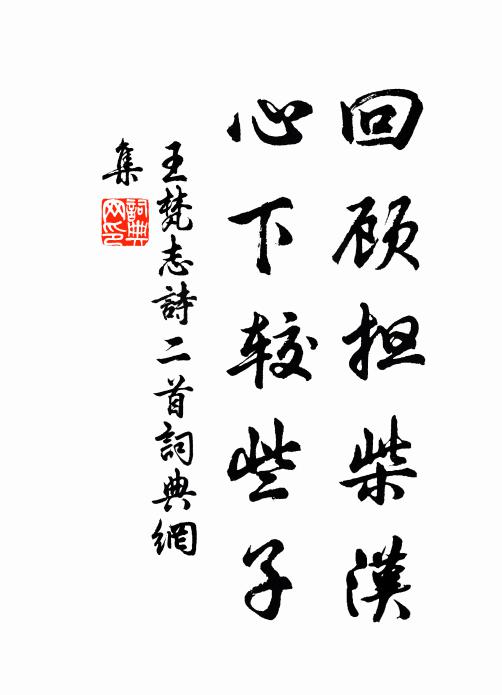 回顾担柴漢
心下较些子
王梵志詩二首詞典網
集
詞典
网印